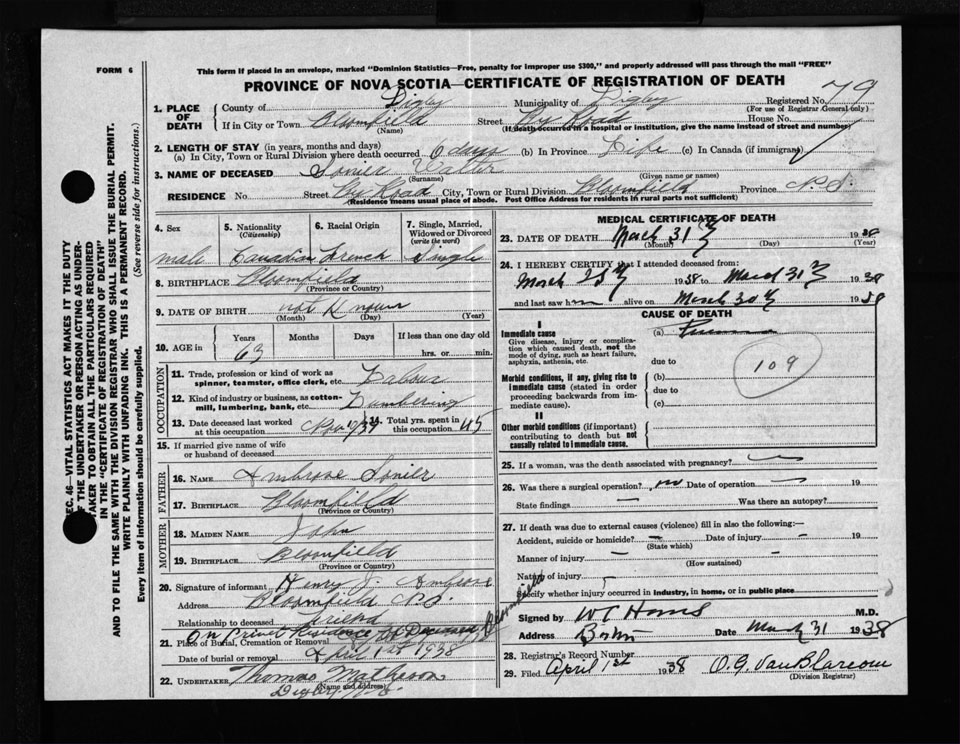 FORM 6
This form if placed in an envelope, marked "Dominion Statistics—Free, penalty for improper use $300," and properly addressed will pass through the mail "FREE"
PROVINCE OF NOVA SCOTIA—CERTIFICATE OF REGISTRATION OF DEATH
1. PLACE OF DEATH County of Digby Municipality of Digby Registered No. 79
(For use of Registrar General only)
If in City or Town Bloomfield Street By Road House No.
(Name) (If death occurred in a hospital or institution, give the name instead of street and number)
2. LENGTH OF STAY (in years, months and days)
(a) In City, Town or Rural Division where death occurred 6 days (b) In Province Life (c) In Canada (if immigrant)
3. NAME OF DECEASED Sonier Walter
(Surname) (Given name or names)
RESIDENCE No Street By Road City, Town or Rural Division Bloomfield Province N.S.
(Residence means usual place of abode. Post Office Address for residents in rural parts not sufficient)
4. Sex male
5. Nationality (Citizenship) Canadian
6. Racial Origin French
7. Single, Married, Widowed or Divorced (write the word) Single
8. BIRTHPLACE Bloomfield
(Province or Country)
9. DATE OF BIRTH not Known
(Month) (Day) (Year)
10. AGE in Years 63 Months Days If less than one day hrs. or min.
OCCUPATION
11. Trade, profession or kind of work as spinner, teamster, office clerk, etc. Labour
12. Kind of industry or business, as cotton-mill, lumbering, bank, etc. Lumbering
13. Date deceased last worked at this occupation Nov /37 14. Total yrs. spent in this occupation 45
15. If married give name of wife or husband of deceased
FATHER
16. NAME Ambrose Sonier
17. BIRTHPLACE Bloomfield
(Province or Country)
MOTHER
18. MAIDEN NAME John
19. BIRTHPLACE Bloomfield
(Province or Country)
20. Signature of informant Henry J.
Address Bloomfield N.S.
Relationship to deceased friend
21. Place of Burial, Cremation or Removal On Privet Residence of Deceased, Bloomfield
Date of burial or removal April 1st 1938
22. UNDERTAKER Thomas Matheson
(Name and address)
Digby N.S.
MEDICAL CERTIFICATE OF DEATH
23. DATE OF DEATH March 31 1938
(Month) (Day) (Year)
24. I HEREBY CERTIFY that I attended deceased from:
March 1938 to March 31 1938
and last saw him alive on March 30 1938
CAUSE OF DEATH
I
Immediate cause (a)
Give disease, injury or complication which caused death, not the mode of dying, such as heart failure, asphyxia, asthenia, etc.
due to
109
Morbid conditions, if any, giving rise to immediate cause (stated in order proceeding backwards from immediate cause).
(b)
due to
(c)
II
Other morbid conditions (if important) contributing to death but not causally related to immediate cause.
25. If a woman, was the death associated with pregnancy?
26. Was there a surgical operation? no Date of operation 19
State findings Was there an autopsy?
27. If death was due to external causes (violence) fill in also the following:—
Accident, suicide or homicide? Date of injury 19
(State which)
Manner of injury
(How sustained)
Nature of injury
Specify whether injury occurred in industry, in home, or in public place
Signed by M.D.
Address Date March 31 1938
28. Registrar's Record Number
29. Filed April 1st 1938 O.G. VanBlarcom
(Division Registrar)
SEC. 46—VITAL STATISTICS ACT MAKES IT THE DUTY
OF THE UNDERTAKER OR PERSON ACTING AS UNDER-
TAKER TO OBTAIN ALL THE PARTICULARS REQUIRED
IN THE "CERTIFICATE OF REGISTRATION OF DEATH"
AND TO FILE THE SAME WITH THE DIVISION REGISTRAR WHO SHALL ISSUE THE BURIAL PERMIT.
WRITE PLAINLY WITH UNFADING INK. THIS IS A PERMANENT RECORD.
Every item of information should be carefully supplied. (See reverse side for instructions.)